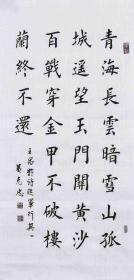 青海長雲暗雪山孤
城遥望玉門關黄沙
百戰穿金甲不破樓
蘭終不還
王昌齡詩從軍行其一